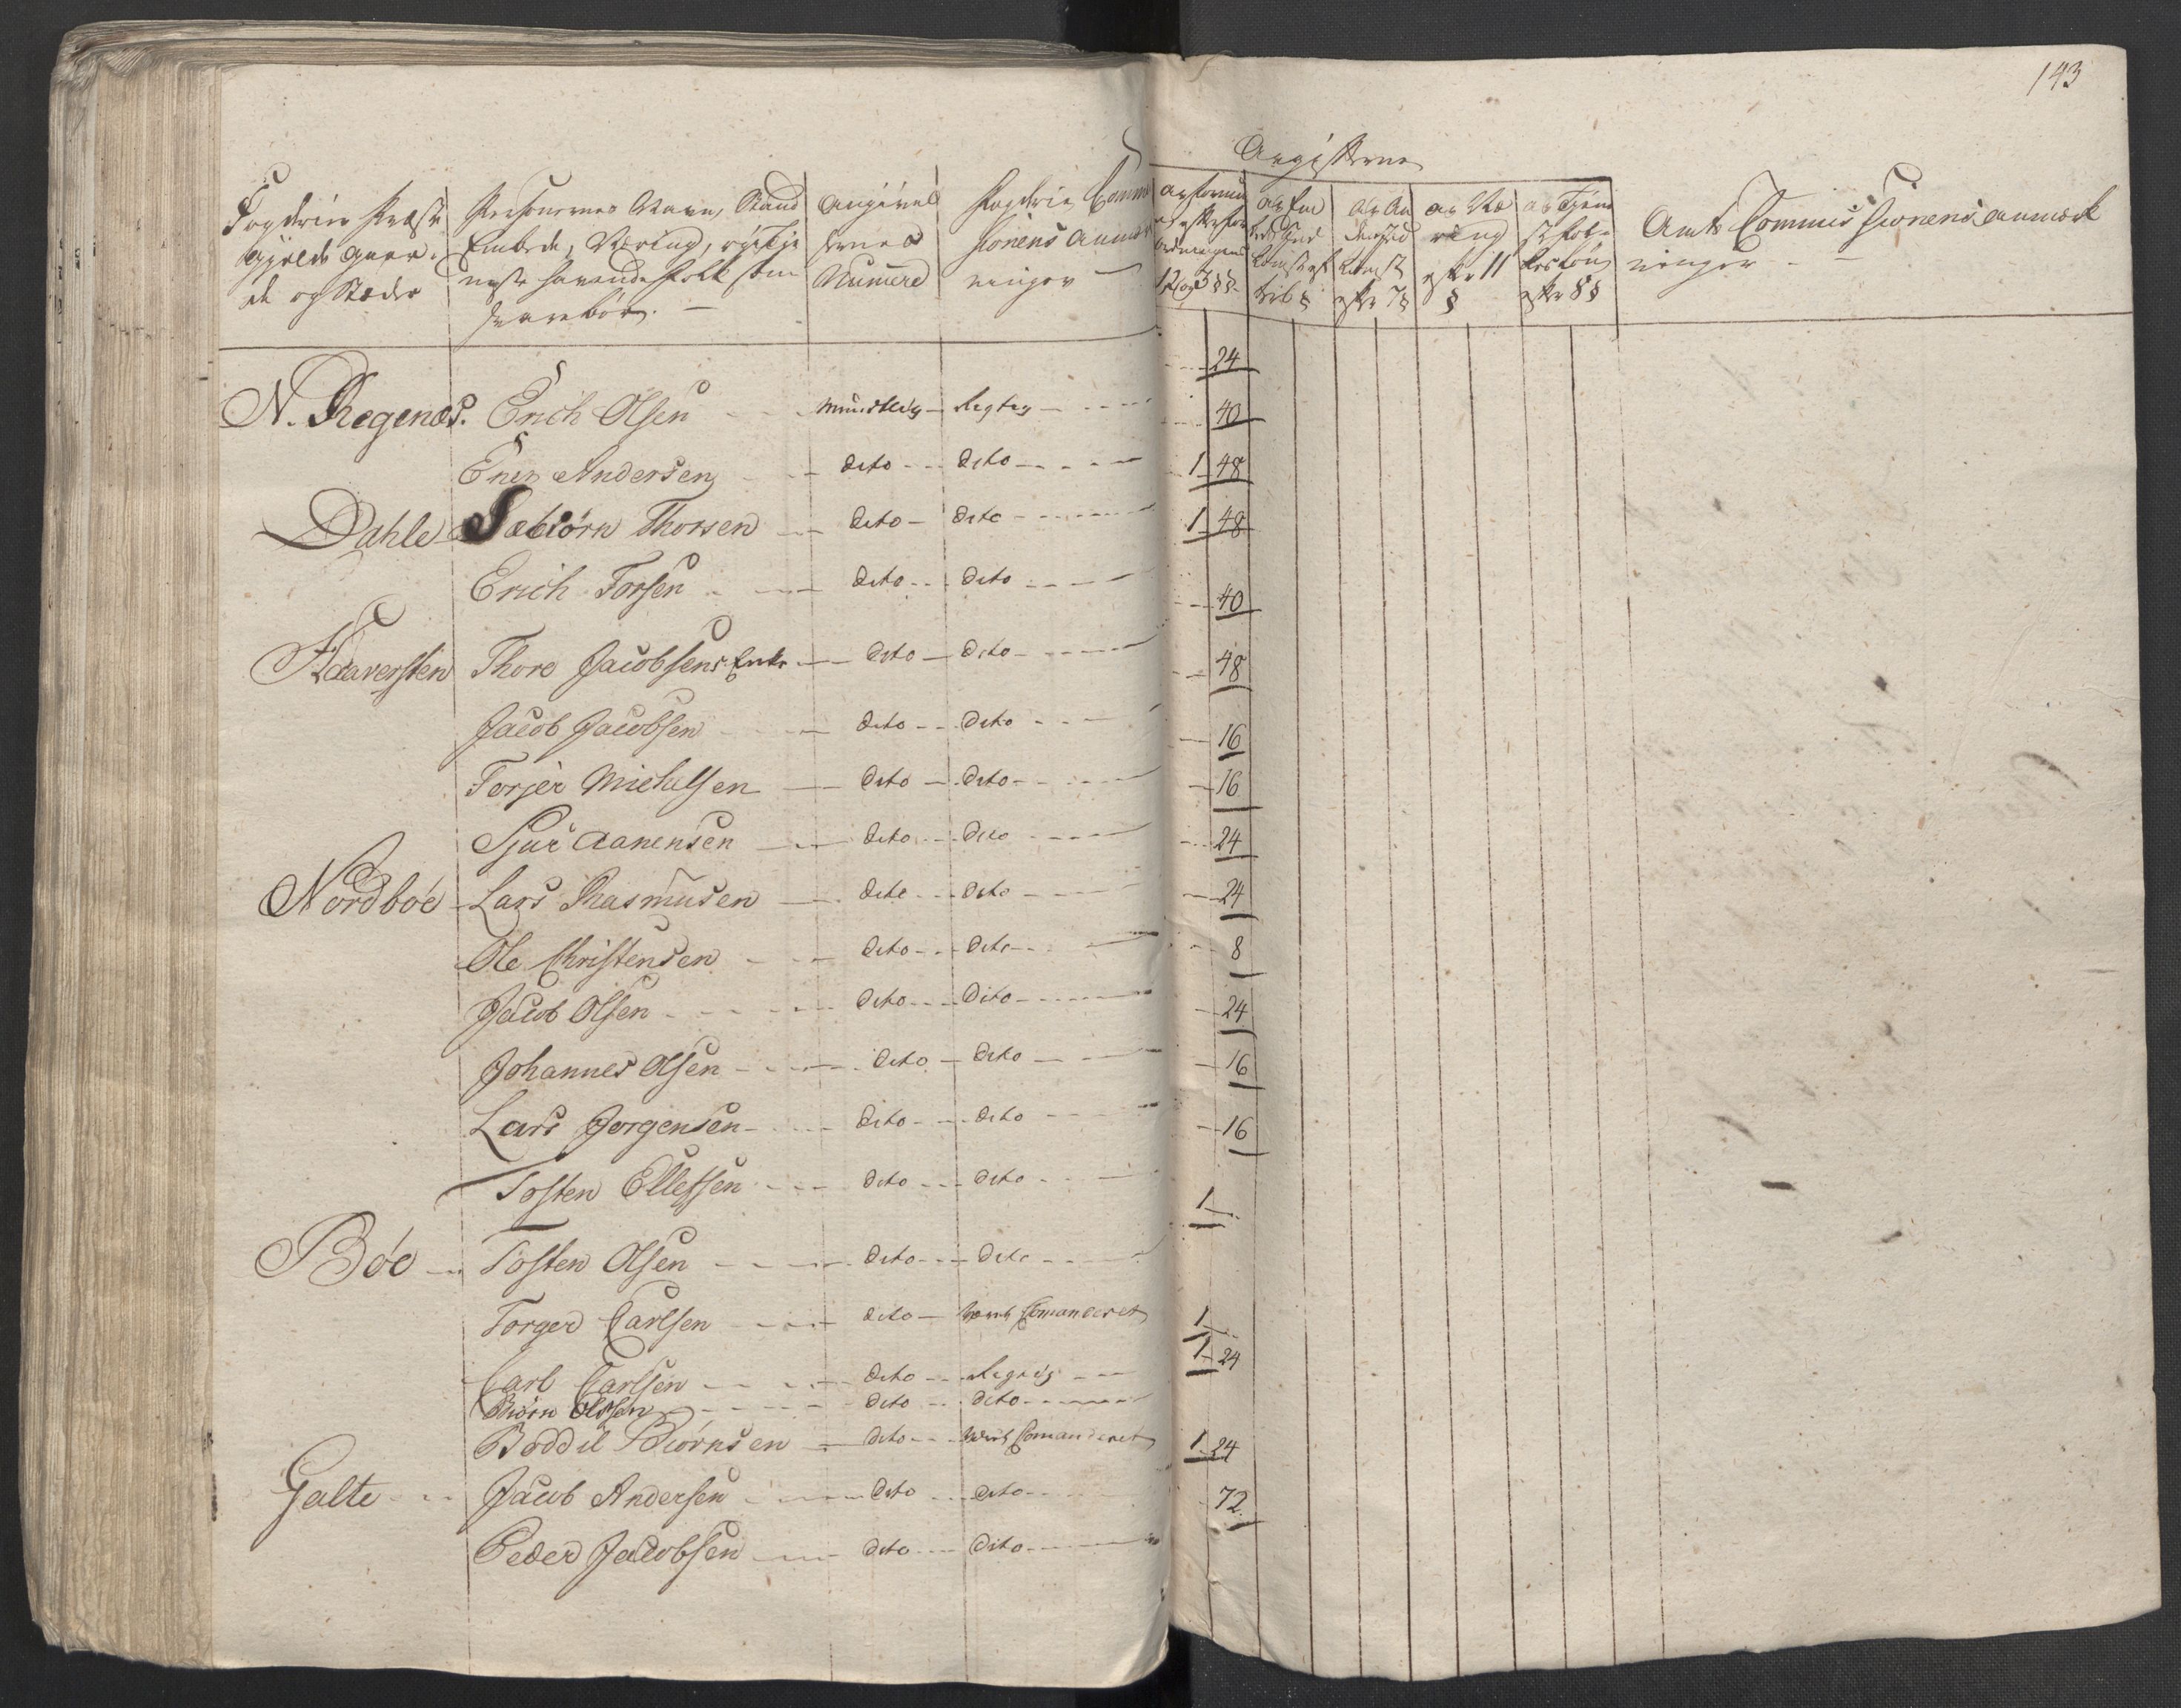 143
Afgifterne
Fogderier Præste
gjelde Gaar-
de og Stæder
Personernes Navn, Stand
Embede, Næring, og Tje
neste havende Folk som
svare bør.
Angivel
sernes
Numere
Fogderie Commis
sionens Anmærk
ninger
af Formue
efter For
ordningens
1, 2 og 3 §§
af Em
beds Ind
komst ef
ter 6 §
af An
den Ind
komst
efter 7 §
af Næ
ring
efter 11
§
af Tjene
ste Fol-
kes Løn
efter 8 §
Amts Commissionens Anmærk
ninger
24
N. Regenæs. Erich Olsen mundtlig Rigtig 40
Ener Andersen dito dito 1 48
Dahle Sæbiörn Thorsen dito dito 1 48
Erich Torsen dito dito 40
Haaversten Thore Jacobsens Enke dito dito 48
Jacob Jacobsen dito dito 16
Torjer Michelsen dito dito 16
Sjur Aanensen dito dito 24
Nordböe Lars Rasmusen dito dito 24
Ole Christensen dito dito 8
Jacob Olsen dito dito 24
Johannes Olsen dito dito 16
Lars Jorgensen dito dito 16
Tosten Ellefsen dito dito 1
Böe Tosten Olsen dito dito
Torger Carlsen dito Comanderet 1
Carl Carlsen dito Rigtig 1 24
Biörn Olsen dito dito
Boddel Biörnsen dito Comanderet 1 24
Galte Jacob Andersen dito dito 72
Peder Jacobsen dito dito